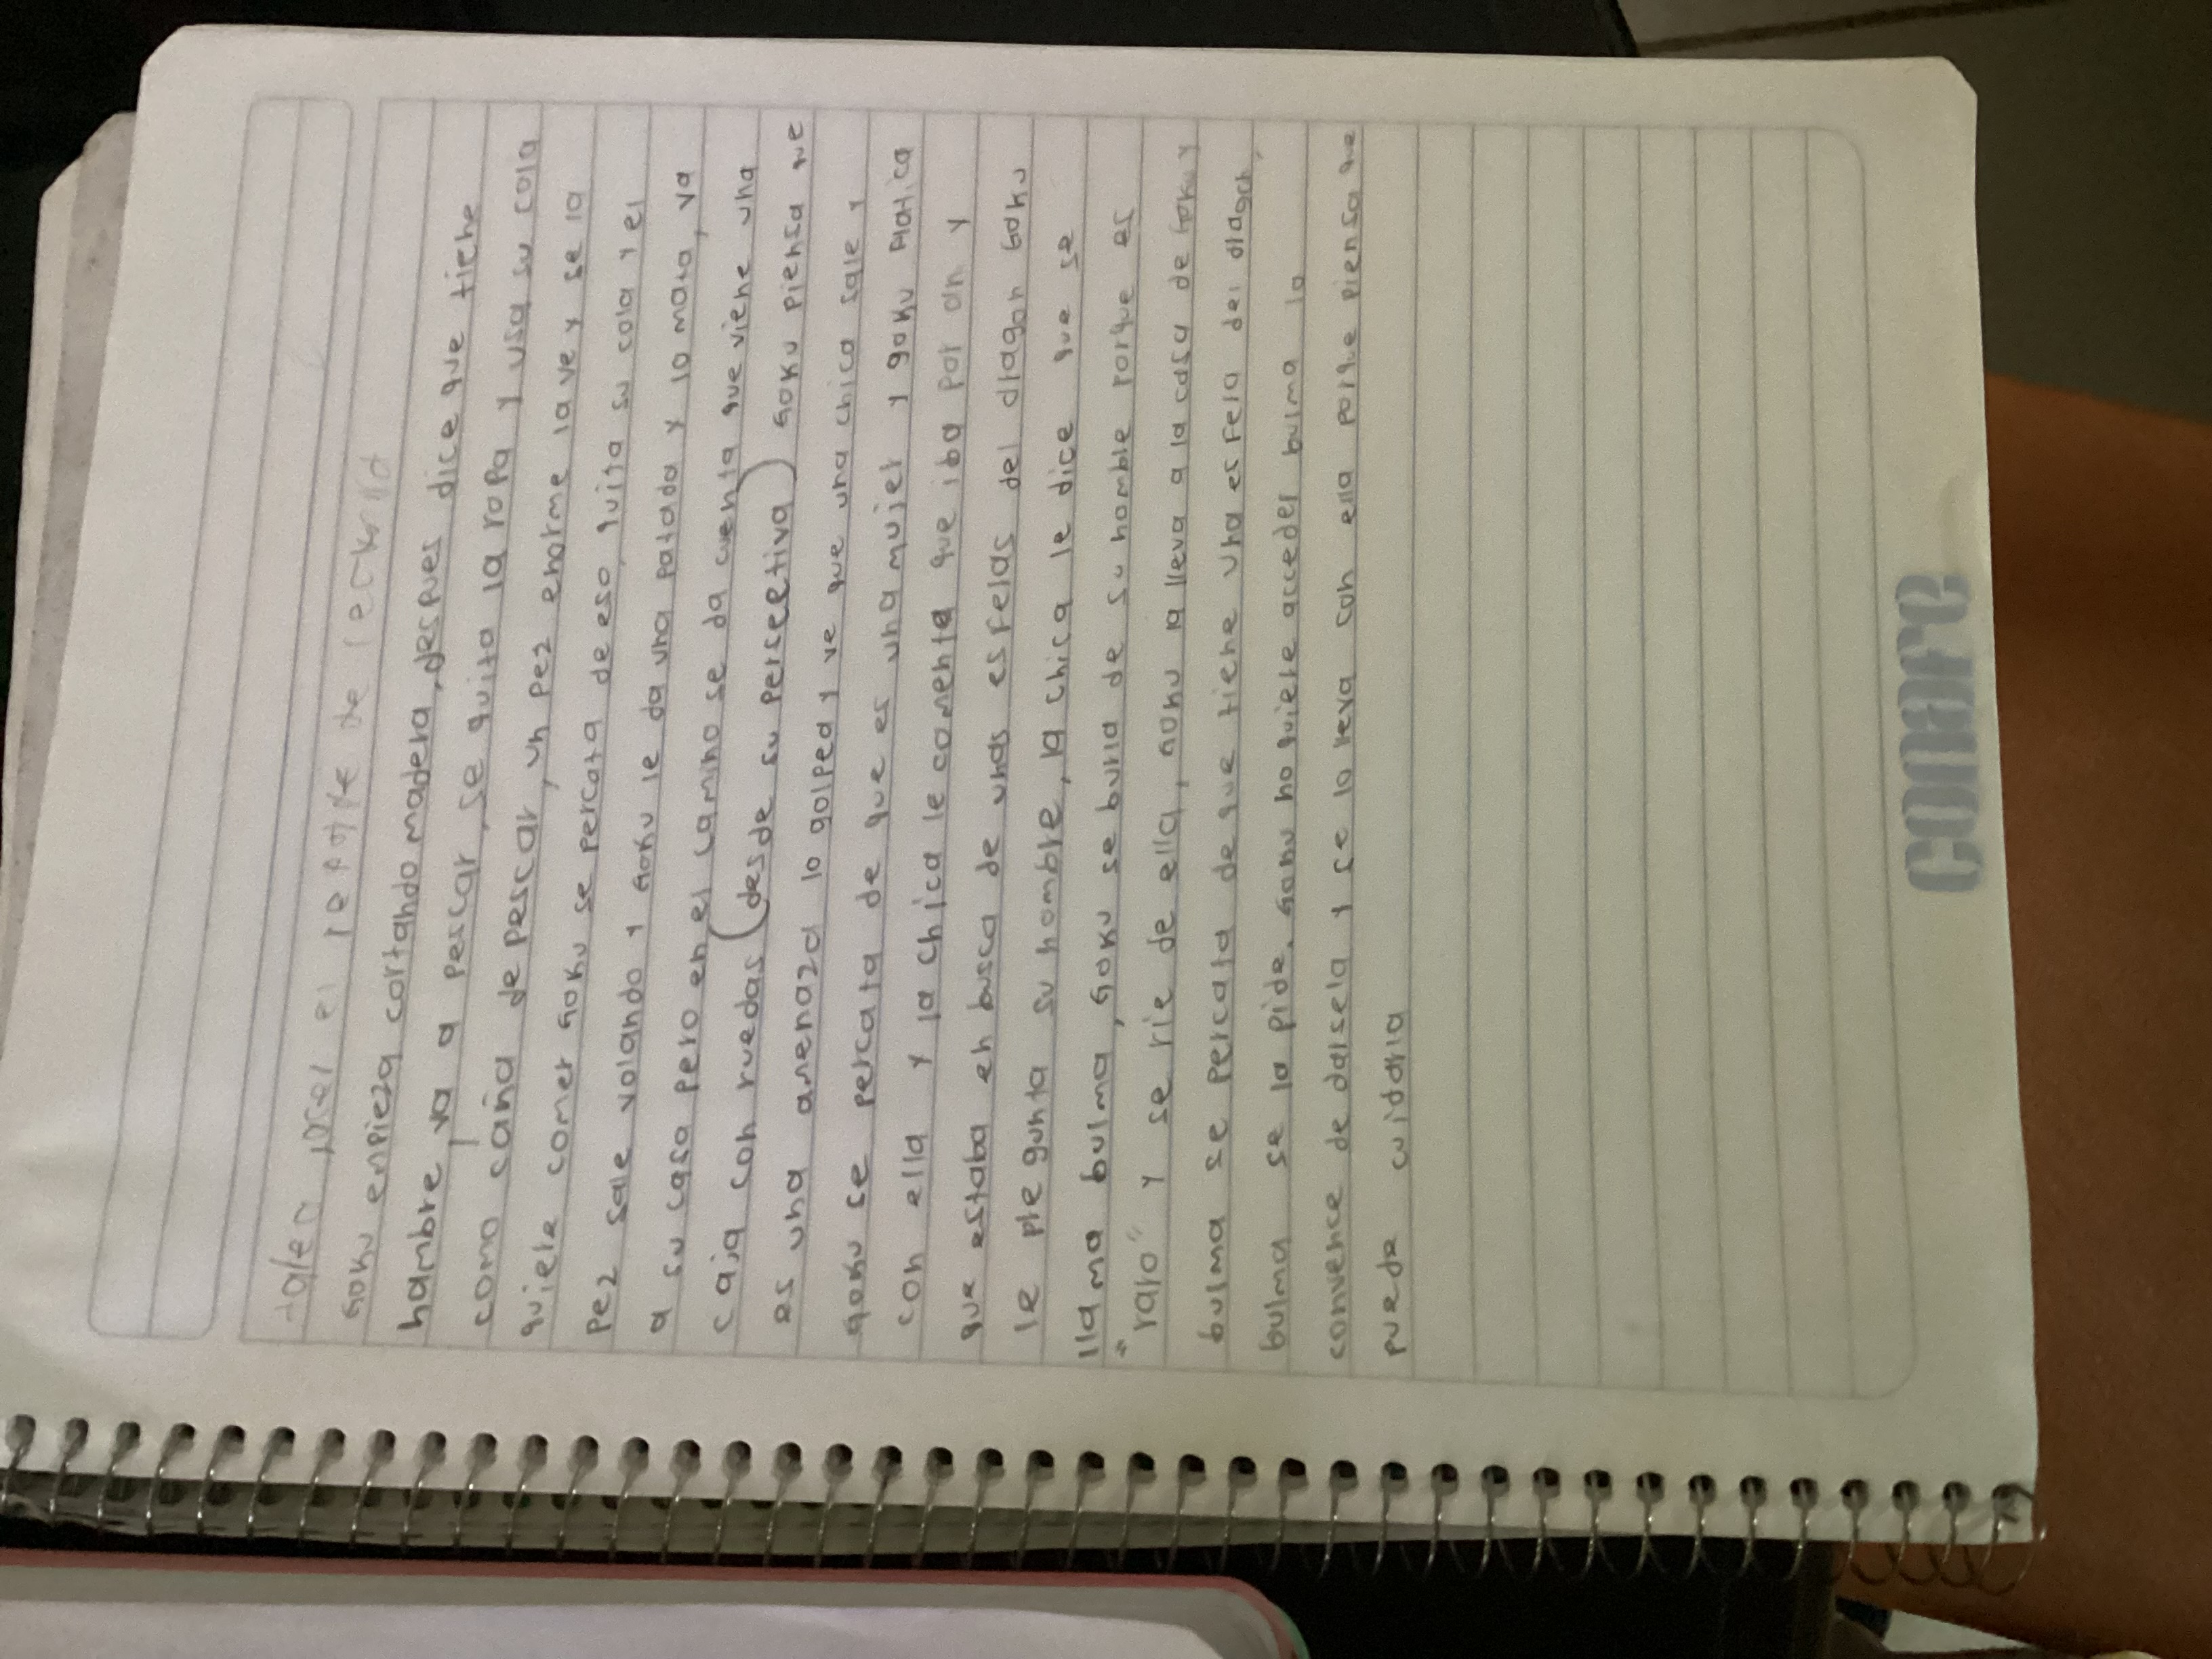 tarea, hacer el reporte de lectura
Goku empieza cortando madera, despues dice que tiene
hambre va a pescar, se quita la ropa y usa su cola
como caña de pescar, un pez enorme la ve y se la
quiere comer Goku se percata de eso, quita su cola y el
pez sale volando y Goku le da una patada y lo mata, va
a su casa pero en el camino se da cuenta que viene una
caja con ruedas (desde su persectiva) Goku piensa que
es una amenaza lo golpea y ve que una chica sale y
goku se percata de que es una mujer y goku platica
con ella y la chica le comenta que iba por an y
que estaba en busca de unas esferas del dragon Goku
le pregunta su nombre, la chica le dice que se
llama bulma, Goku se burla de su nombre porque es
"raro" y se rie de ella, Goku la lleva a la casa de Goku y
bulma se percata de que tiene una esfera del dragon,
bulma se la pide. Goku no quiere acceder bulma lo
convence de darsela y se lo lleva con ella porque piensa que
puede cuidarla
conafe